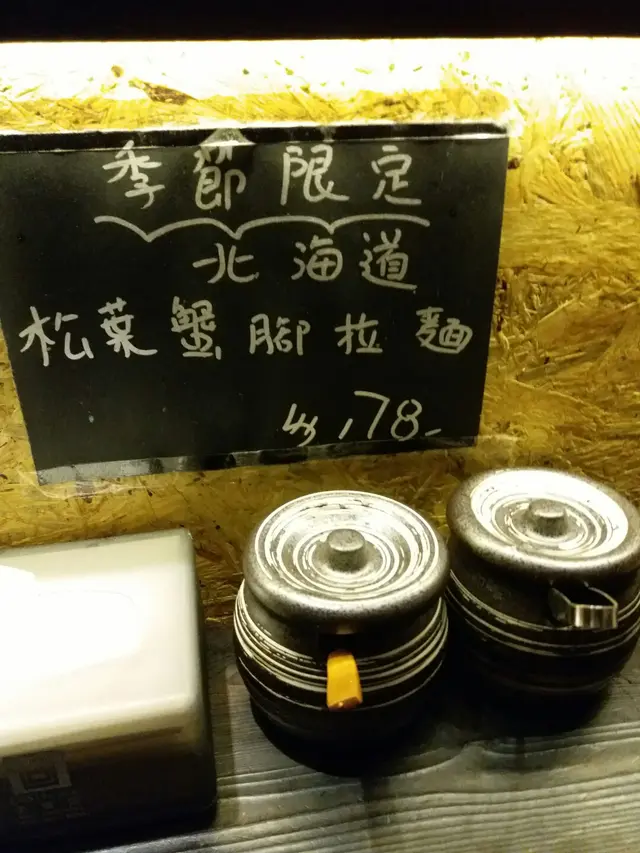 季節限定
北海道
松葉蟹腳拉麵
178.